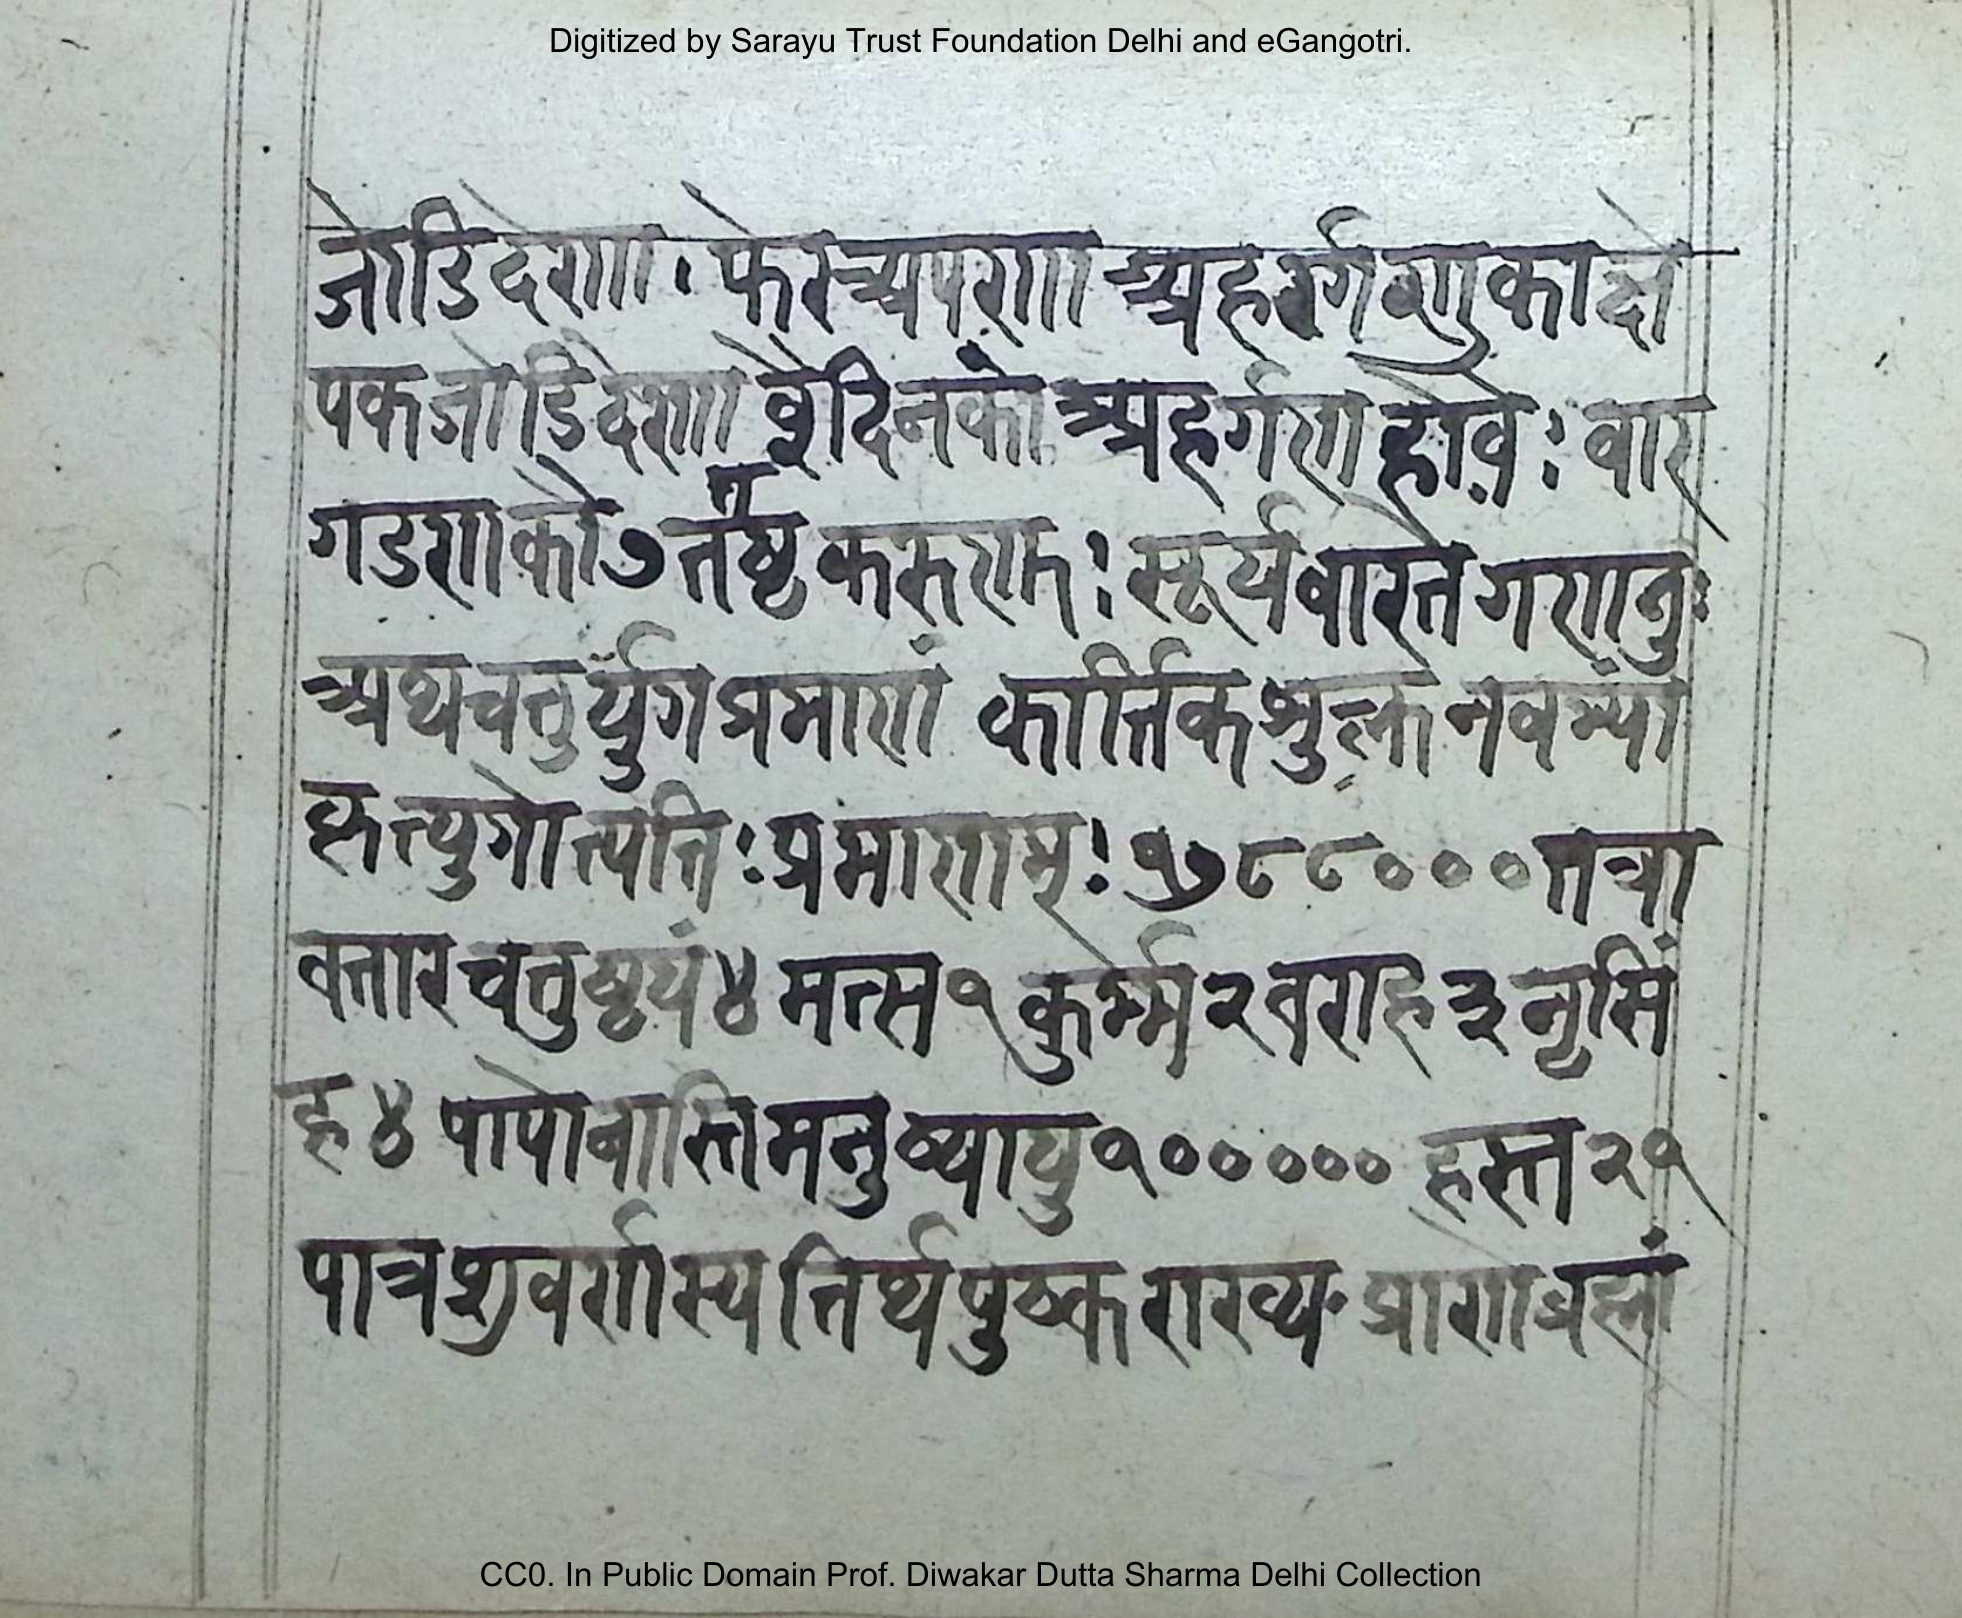 Digitized by Sarayu Trust Foundation Delhi and eGangotri.
जोडिदेणा · फेरच्यपणा अहर्गण का
पकजोडिदेणा वैदिनको अहर्गण होवे : वार
गडणाको ७ तष्ट : सूर्यवारते गणानु :
अथ चतुर्युग प्रमाणां कार्त्तिक शुक्ल नवम्यां
कृत्युगोत्पत्ति : प्रमाणाम् : १७८८००० तत्रा
वतार चतुष्टयं ४ मत्स १ कुर्म्म २ वराह ३ नृसिं
ह ४ पापोनास्ति मनुष्यायु १००००० हस्त २१
पात्र शुवर्णास्य तिर्थ पुष्कराख्य प्राणो
CC0. In Public Domain Prof. Diwakar Dutta Sharma Delhi Collection